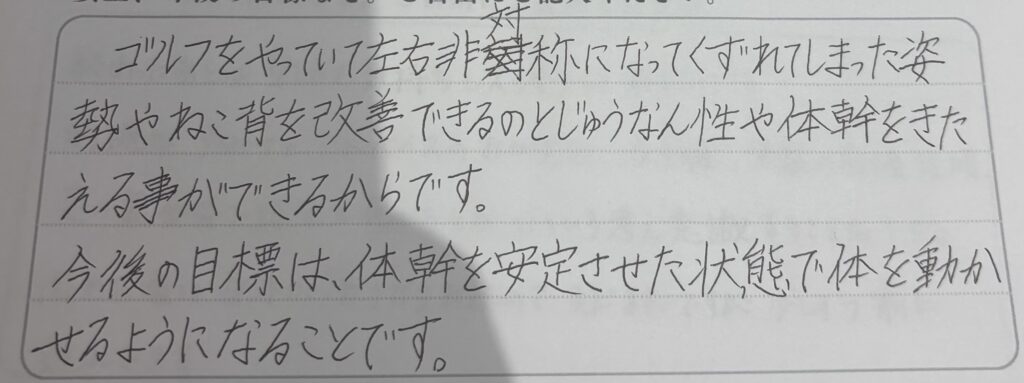 ゴルフをやっていて左右非対称になってくずれてしまった姿
勢やねこ背を改善できるのとじゅうなん性や体幹をきた
える事ができるからです。
今後の目標は、体幹を安定させた状態で体を動か
せるようになることです。